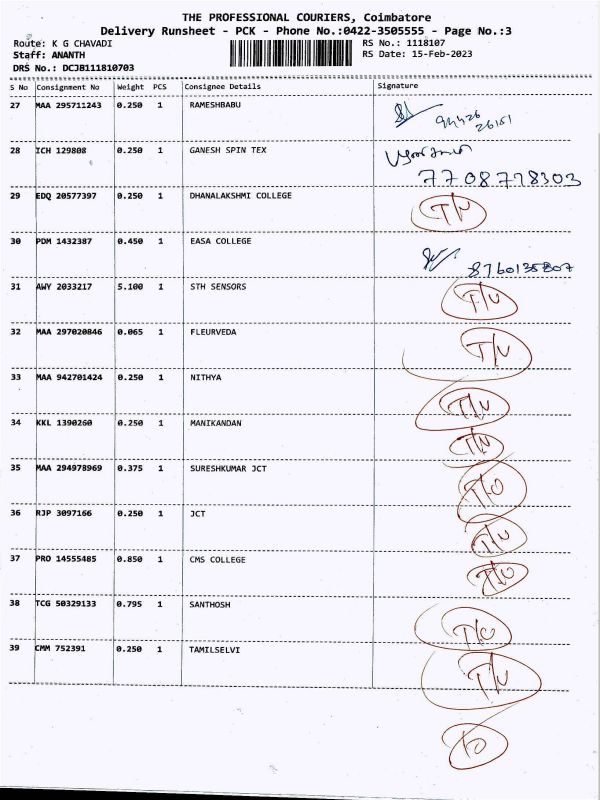 THE PROFESSIONAL COURIERS, Coimbatore
Delivery Runsheet - PCK - Phone No.:0422-3505555 - Page No.:3
Route: K G CHAVADI
RS No.: 1118107
Staff: ANANTH
RS Date: 15-Feb-2023
DRS No.: DCJB111810703
S No Consignment No Weight PCS Consignee Details Signature
27 MAA 295711243 0.250 1 RAMESHBABU
28 ICH 129808 0.250 1 GANESH SPIN TEX
7708778303
29 EDQ 20577397 0.250 1 DHANALAKSHMI COLLEGE T/U
30 PDM 1432387 0.450 1 EASA COLLEGE
8760135807
31 AWY 2033217 5.100 1 STH SENSORS T/U
32 MAA 297020846 0.065 1 FLEURVEDA T/U
33 MAA 942701424 0.250 1 NITHYA T/U
34 KKL 1390260 0.250 1 MANIKANDAN T/U
35 MAA 294978969 0.375 1 SURESHKUMAR JCT T/O
36 RJP 3097166 0.250 1 JCT T/U
37 PRO 14555485 0.850 1 CMS COLLEGE T/U
38 TCG 50329133 0.795 1 SANTHOSH T/U
39 CMM 752391 0.250 1 TAMILSELVI T/U